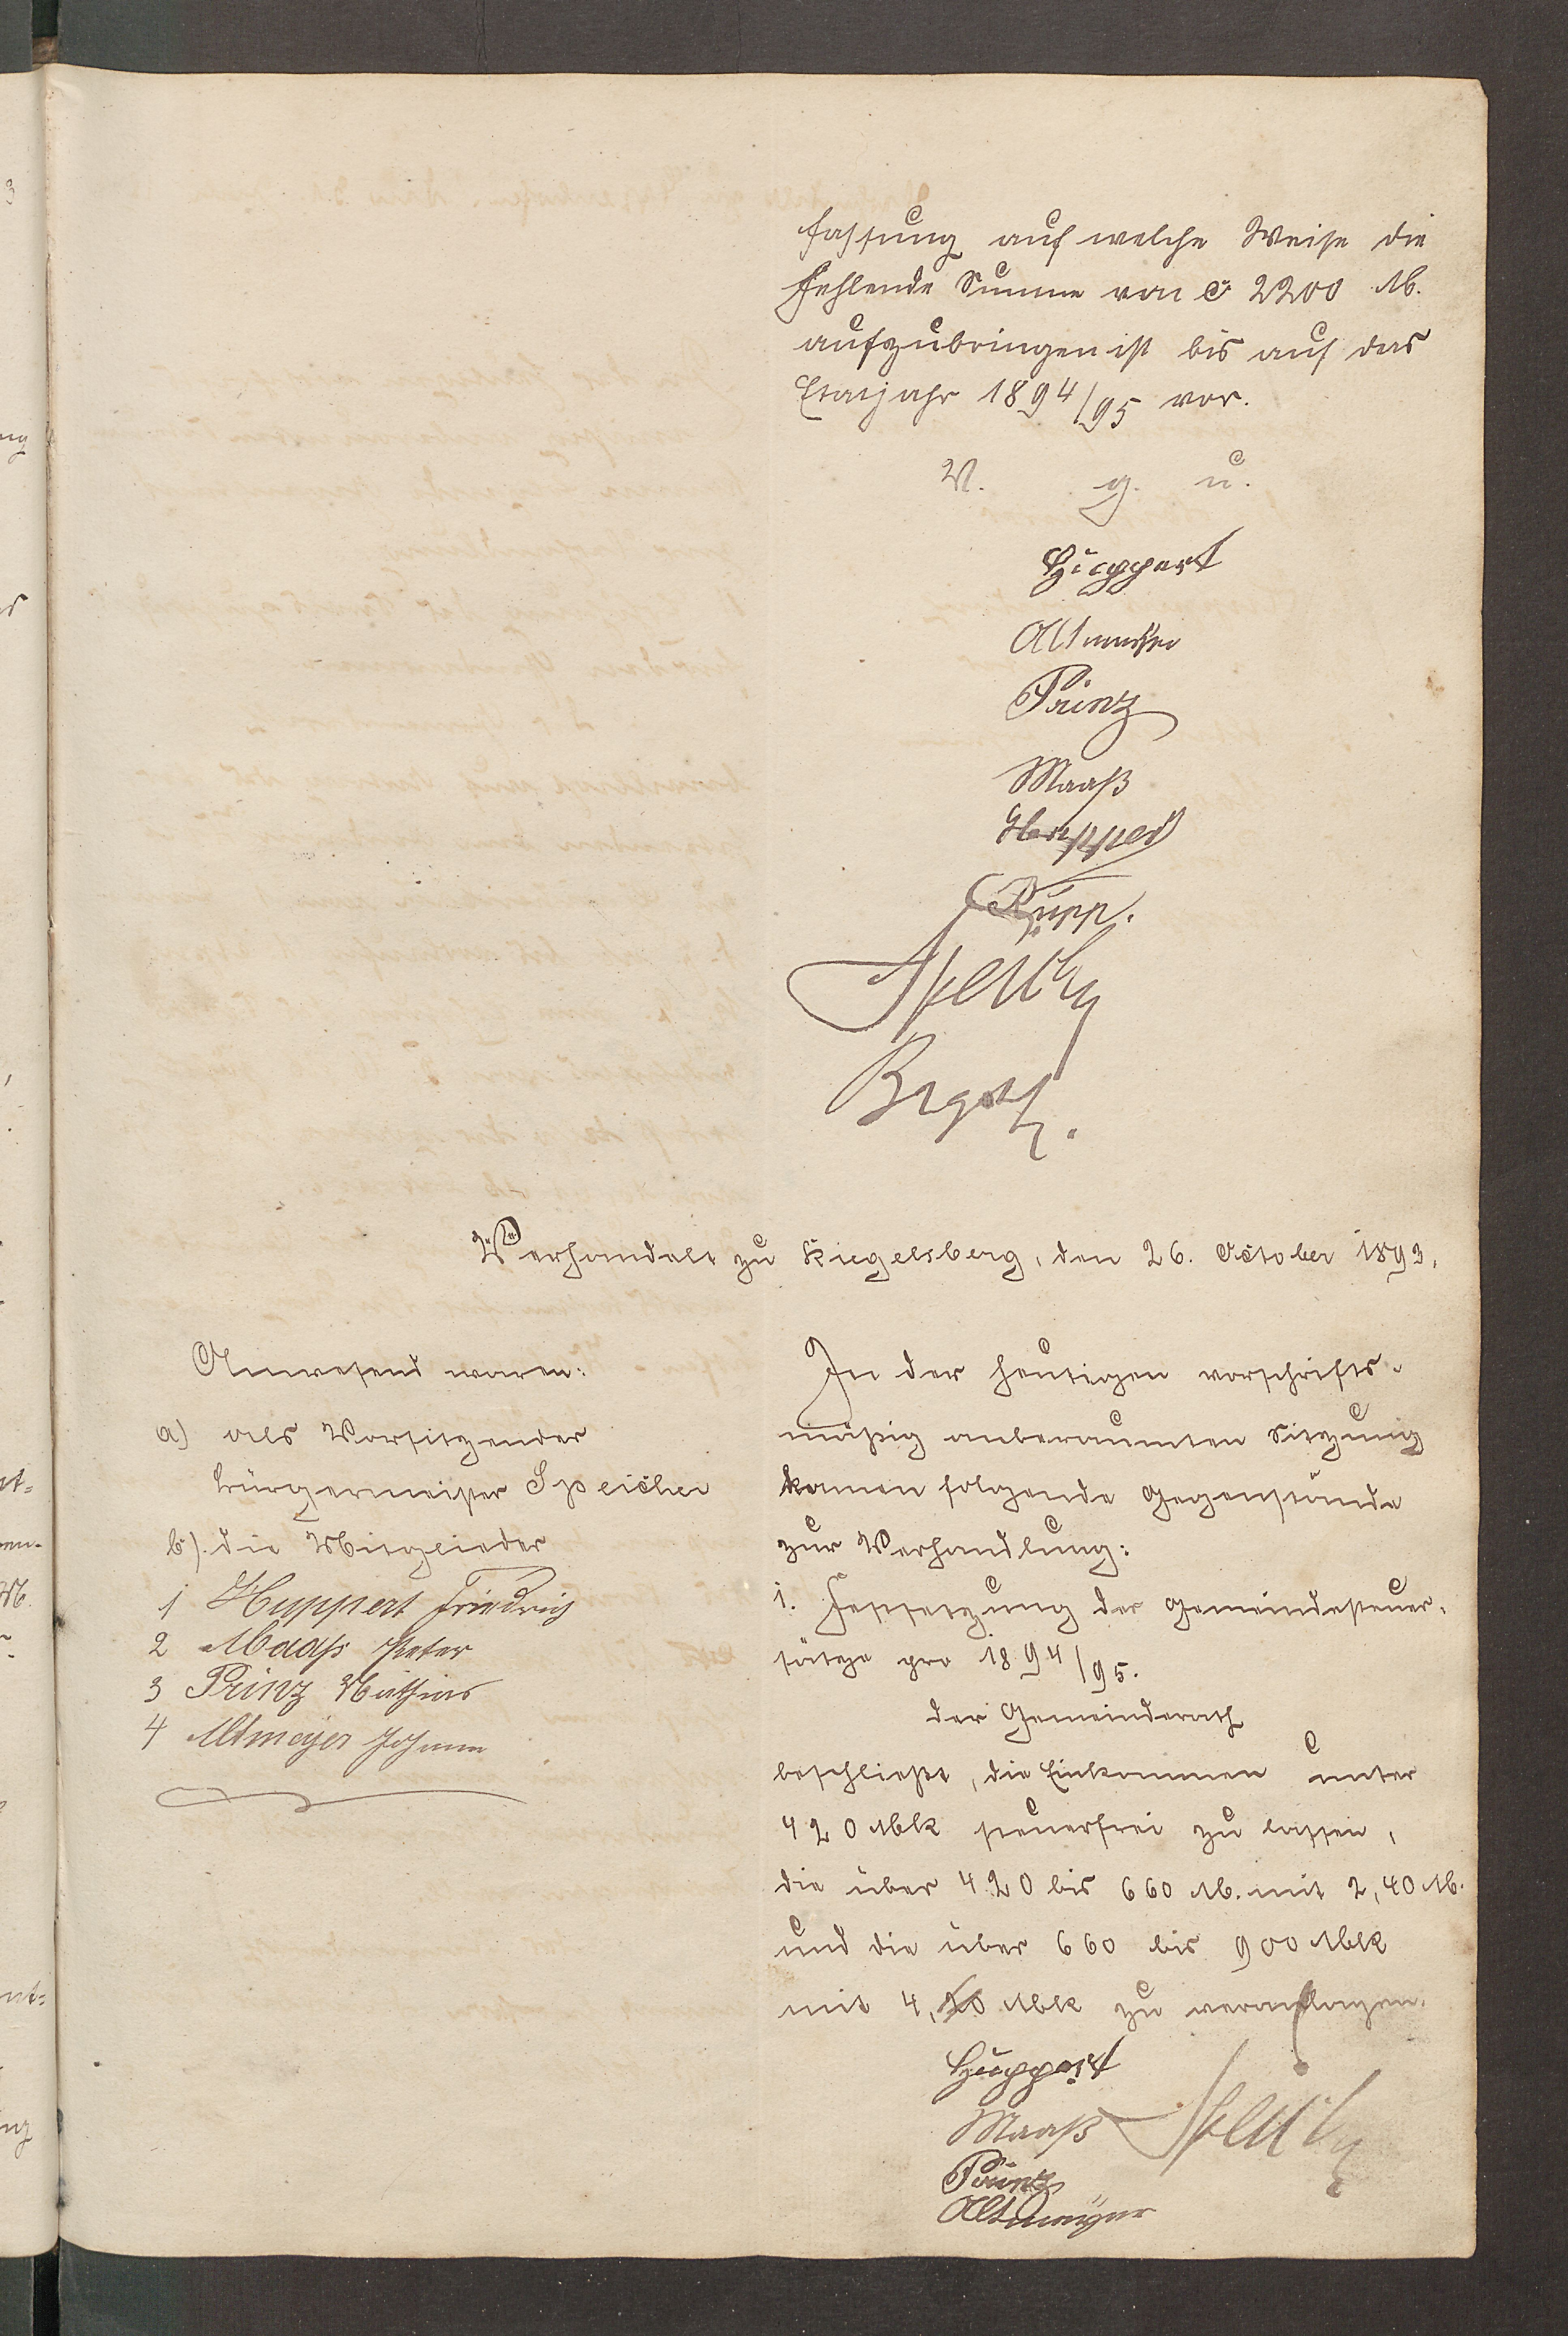 fassung auf welche Weise die
fehlende Summe von c. 2200 M.
aufzubringen ist bis auf das
Etatsjahr 1894/95 vor.
V. g. u.
Huppert
Altmeyer
Prinz
Maaß
Huppert
Rupp.
Speicher
Verhandelt zu Riegelsberg, den 26. October 1893.
Anwesend waren:
a) als Vorsitzender
Bürgermeister Speicher
b). die Mitglieder
1 Huppert Friedrich
2 Maaß Peter
3 Prinz Mathias
4 Altmeyer Johann
In der heutigen vorschrifts-
mäßig anberaumten Sitzung
kamen folgende Gegenstände
zur Verhandlung:
1. Festsetzung der Gemeindesteuer-
sätze pro 1894/95.
Der Gemeinderath
beschließt, die Einkommen unter
420 Mk steuerfrei zu lassen,
die über 420 bis 660 M. mit 2,40 M.
und die über 660 bis 900 Mk
mit 4, Mk zu veranlagen.
Huppert
Maaß Speicher
Prinz
Altmeyer